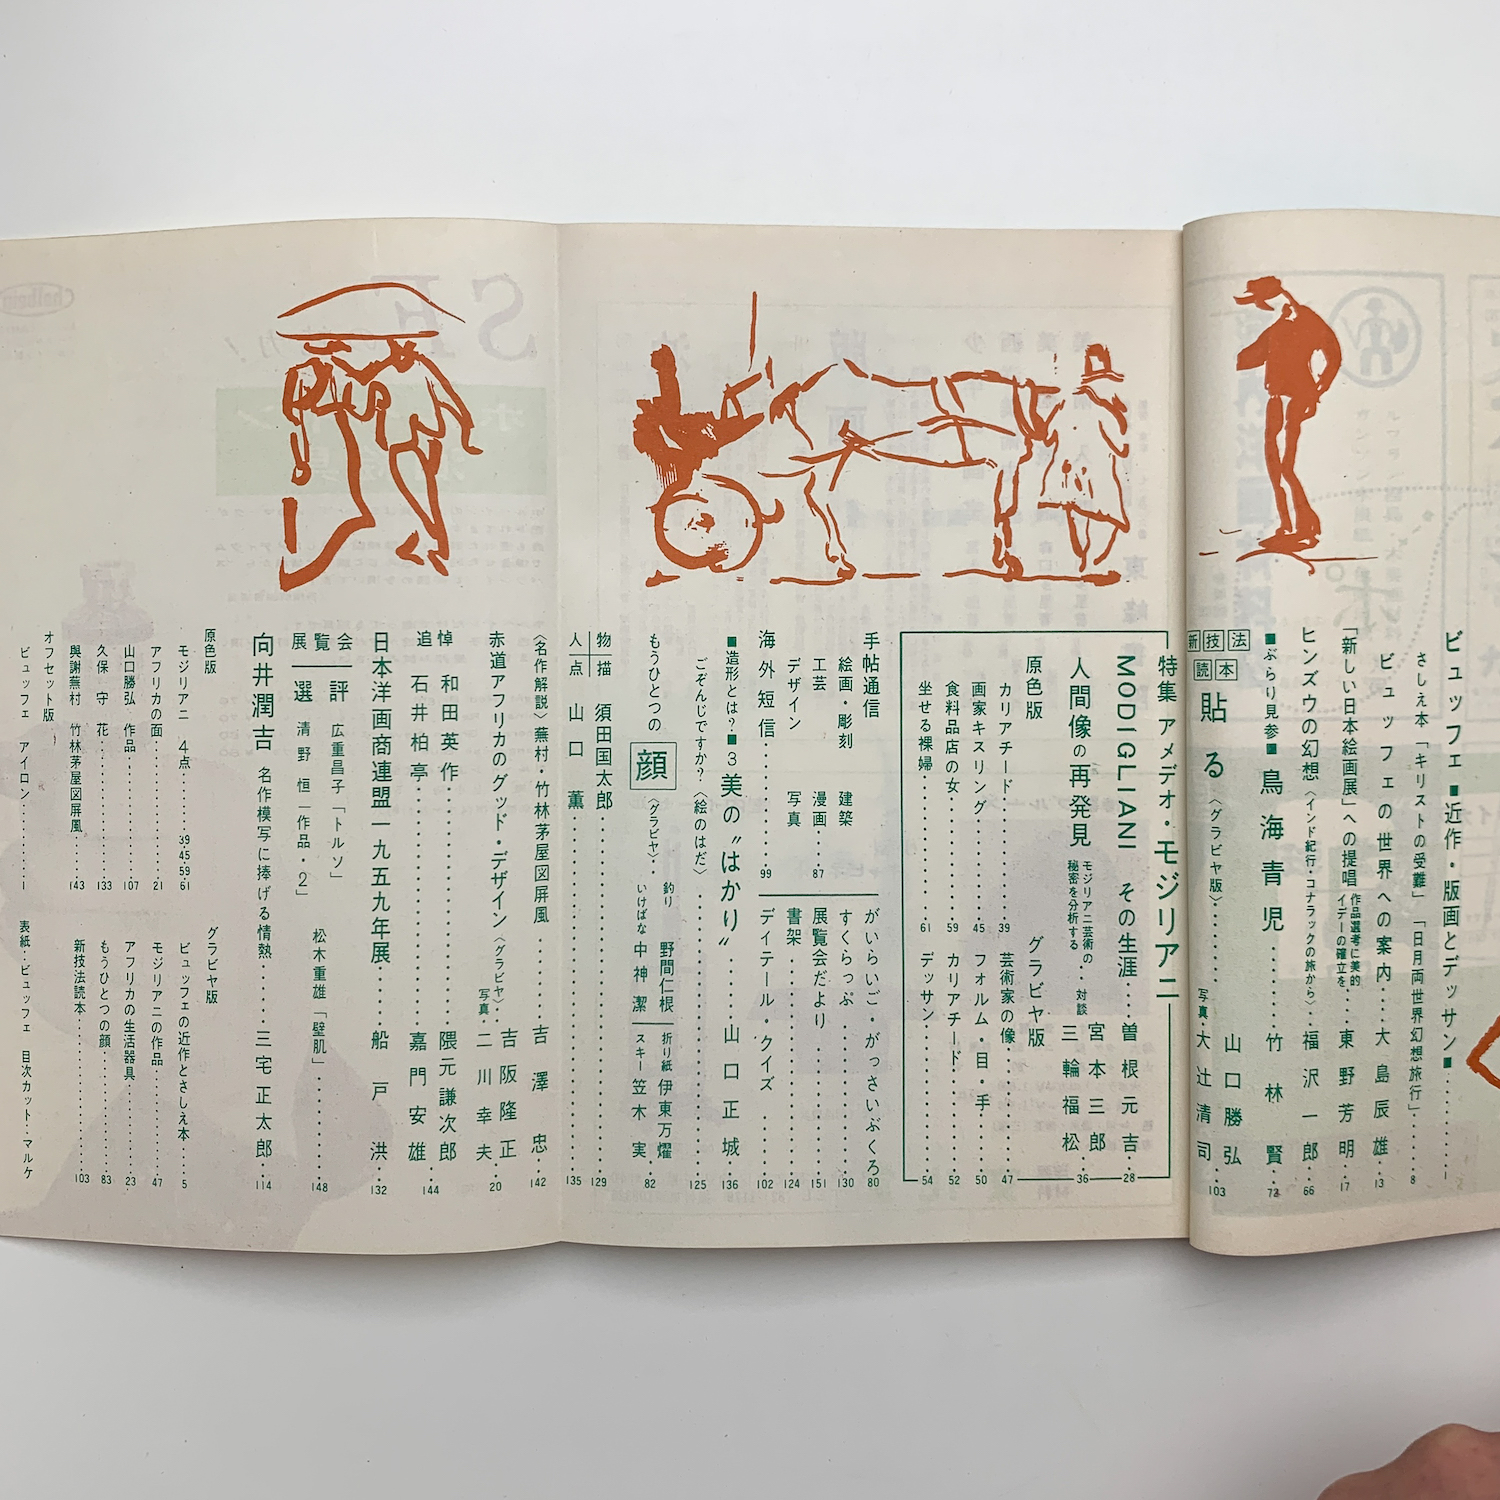 ビュッフェ■近作・版画とデッサン■‥‥‥‥1
さしえ本「キリストの受難」「日月両世界幻想旅行」‥‥8
ビュッフェの世界への案内‥‥大島辰雄‥13
「新しい日本絵画展」への提唱 作品選考に美的イデーの確立を‥東野芳明‥17
ヒンズウの幻想〈インド紀行・コナラックの旅から〉‥福沢一郎‥66
■ぶらり見参■鳥海青児‥‥‥‥竹林賢‥72
新技法読本
貼る〈グラビヤ版〉‥‥‥‥山口勝弘
写真・大辻清司‥103
特集 アメデオ・モジリアニ
MODIGLIANI その生涯‥‥曽根元吉‥28
人間像の再発見 モジリアニ芸術の秘密を分析する‥‥対談 宮本三郎 三輪福松‥36
原色版
カリアチード‥‥‥‥39
画家キスリング‥‥‥‥45
食料品店の女‥‥‥‥59
坐せる裸婦‥‥‥‥61
グラビヤ版
芸術家の像‥‥‥‥47
フォルム・目・手‥‥50
カリアチード‥‥‥‥52
デッサン‥‥‥‥54
手帖通信
絵画・彫刻 建築
工芸 漫画‥‥87
デザイン 写真
海外短信‥‥‥‥99
がいらいご・がっさいぶくろ 80
すくらっぷ‥‥‥‥130
展覧会だより‥‥‥‥151
書架‥‥‥‥124
デイテール・クイズ‥‥‥‥102
■造形とは?■3美の〝はかり〟‥‥‥‥山口正城‥136
ごぞんじですか?〈絵のはだ〉‥‥‥‥125
もうひとつの顔〈グラビヤ〉‥ 釣り 野間仁根 いけばな 中神潔 折り紙 伊東万燿 スキー 笠木実‥82
人物点描
須田国太郎‥‥‥‥129
山口薫‥‥‥‥135
〈名作解説〉蕪村・竹林茅屋図屏風‥‥‥‥吉澤忠‥142
赤道アフリカのグッド・デザイン〈グラビヤ〉‥吉阪隆正
写真・二川幸夫‥20
追悼
和田英作‥‥‥‥隈元謙次郎
石井柏亭‥‥‥‥嘉門安雄‥144
日本洋画商連盟一九五九年展‥‥船戸洪‥132
展覧会
評 広重昌子「トルソ」
選 清野恒「作品・2」
松木重雄「壁肌」‥‥‥‥148
向井潤吉 名作模写に捧げる情熱‥‥‥‥三宅正太郎‥114
原色版
モジリアニ 4点‥‥‥‥39・45・59・61
アフリカの面‥‥‥‥21
山口勝弘 作品‥‥‥‥107
久保守 花‥‥‥‥133
與謝蕪村 竹林茅屋図屏風‥‥143
オフセット版
ビュッフェ アイロン‥‥‥‥1
グラビヤ版
ビュッフェの近作とさしえ本‥‥5
モジリアニの作品‥‥‥‥47
アフリカの生活器具‥‥‥‥23
もうひとつの顔‥‥‥‥83
新技法読本‥‥‥‥103
表紙・ビュッフェ 目次カット・マルケ